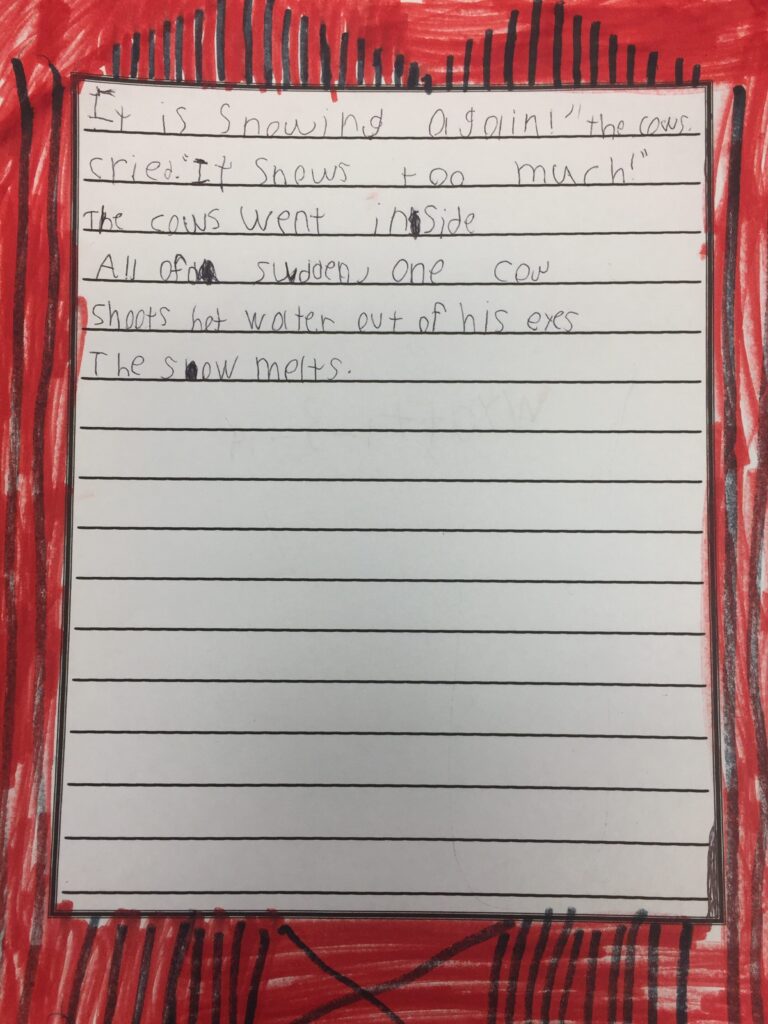 It is Snowing again!" the cows.
cried. "It Snows too much!"
The cows went inSide
All of a sudden, one cow
Shoots hot water out of his eyes
The snow melts.